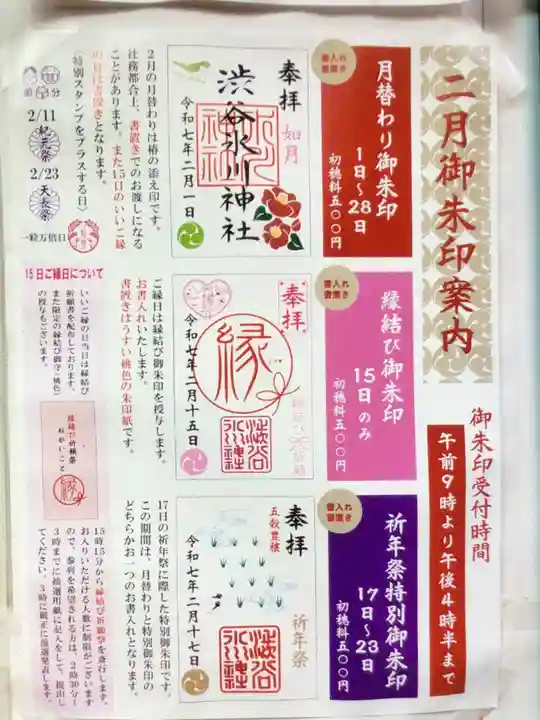 二月御朱印案内
御朱印受付時間
午前9時より午後4時半まで
書入れ
書置き
月替わり御朱印
1日〜28日
初穂料五〇〇円
奉拝
如月
渋谷氷川神社
令和七年二月一日
2月の月替わりは椿の添え印です。
社務都合上、書置きでのお渡しになる
ことがあります。また15日のいいご縁
の日は書置きとなります。
〈特別スタンプをプラスする日〉
節分
2/11
紀元祭
2/23
天長祭
一粒万倍日
書入れ
書置き
縁結び御朱印
15日のみ
初穂料五〇〇円
奉拝
縁
縁結び祈願
渋谷氷川神社
令和七年二月十五日
ご縁日は縁結び御朱印を授与します。
お書入れいたします。
書置きはうすい桃色の朱印紙です。
15日ご縁日について
いいご縁の日当日は縁結び
祈願書を配布しております。
また限定の縁結び御守(桃色)
の授与もございます。
縁結び祈願祭
ねがいごと
縁
15時15分から縁結び祈願祭を斎行します。
お入りいただける人数に制限がございます
ので、参列を希望される方は、2時30分〜
3時までに抽選用紙に記入をして、提出し
てください。3時に厳正に抽選発表します。
書入れ
書置き
祈年祭特別御朱印
17日〜23日
初穂料五〇〇円
奉拝
五穀豊穣
祈年祭
渋谷氷川神社
令和七年二月十七日
17日の祈年祭に際した特別御朱印です。
この期間は、月替わりと特別御朱印の
どちらかお一つのお書入れとなります。